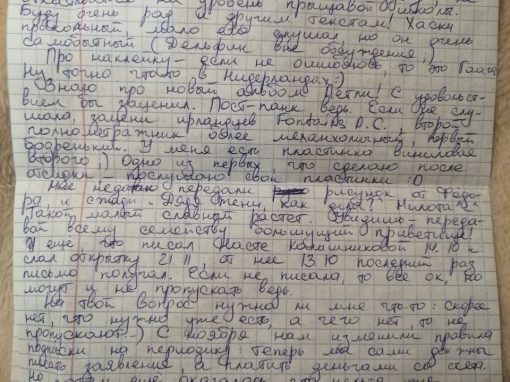 как уровень прыщавой
Буду очень рад и другим текстам! Хаски
прикольный, мало его слушал, но он очень
самобытный (Дельфин вне обсуждения;)
Про наклейку - если не ошибаюсь, то это Гаага.
Ну точно что-то в Нидерландах:)
Знаю про новый альбом Петли! С удовольст-
вием бы заценил. Пост-панк ведь. Если не слу-
шала, зацени ирландцев Fontaines D.C., второй
полнометражник более меланхоличный, первый
бодренький. У меня есть пластинка виниловая
второго;) Одно из первых, что сделаю после
отсидки - послушаю свои пластинки :D
Мне недавно передали рисунок от Федо-
ра, и сзади: "Дядя Женя, как дела?" Милота!
Такой малый славный растет. Увидишь - переда-
вай всему семейству большущий приветище!
И еще, что писал Насте Калашниковой 14.10 и
слал открытку 21.11, от нее 13.10 последний раз
письмо получал. Если не писала, то все ок, но
могут и не пропускать ведь.
На твой вопрос нужно ли мне что-то: скорее
нет, что нужно уже есть, а чего нет, то не
пропускают..) С ноября нам изменили правила
подписки на периодику: теперь мы сами должны
писать заявления, а платить деньгами со счета.